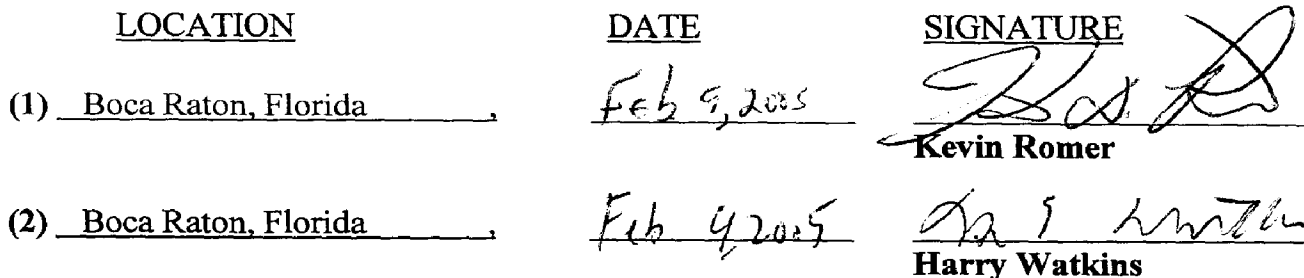 LOCATION DATE SIGNATURE
(1) Boca Raton, Florida , Feb 9, 2005
Kevin Romer
(2) Boca Raton, Florida , Feb 9, 2005
Harry Watkins